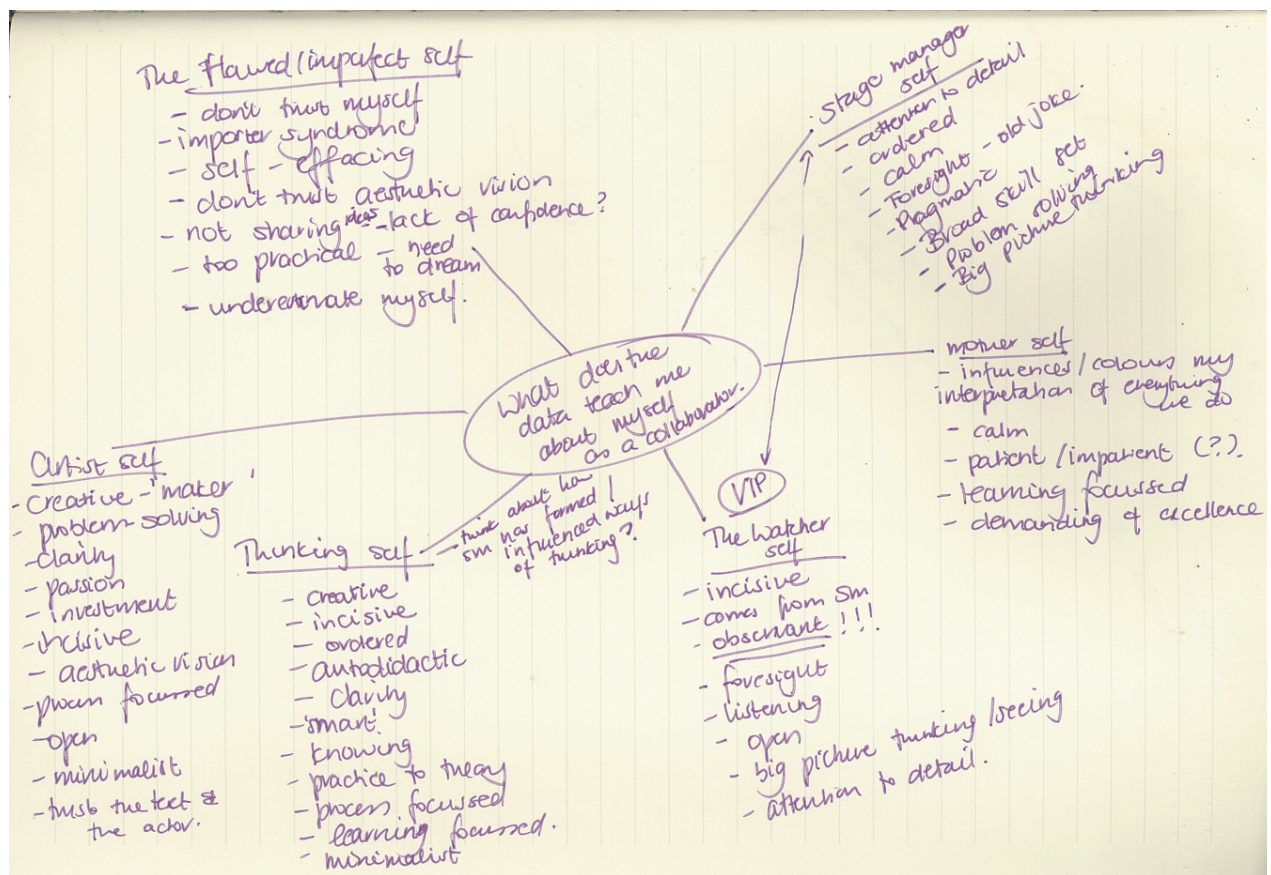 The flawed/imperfect self
- don't trust myself
- imposter syndrome
- self-effacing
- don't trust aesthetic vision
- not sharing ideas - lack of confidence?
- too practical - need
to dream
- underestimate myself.
Stage manager
self
- attention to detail
- ordered
- calm
- Foresight - old joke.
- Pragmatic
- Broad skill set
- Problem solving
- Big picture thinking
What does the
data teach me
about myself
as a collaborator.
mother self
- influences/colours my
interpretation of everything
we do
- calm
- patient/impatient (?).
- learning focussed
- demanding of excellence
Artist self
- creative - 'maker'
- problem-solving
- clarity
- passion
- investment
- incisive
- aesthetic vision
- process focussed
- open
- minimalist
- trusts the text &
the actor.
Thinking self
- think about how
SM has formed/
influenced ways
of thinking?
- creative
- incisive
- ordered
- autodidactic
- clarity
- 'smart'
- knowing
- practice to theory
- process focussed
- learning focussed.
- minimalist
VIP
The Watcher
self
- incisive
- comes from SM
- observant!!!
- foresight
- listening
- open
- big picture thinking/seeing
- attention to detail.